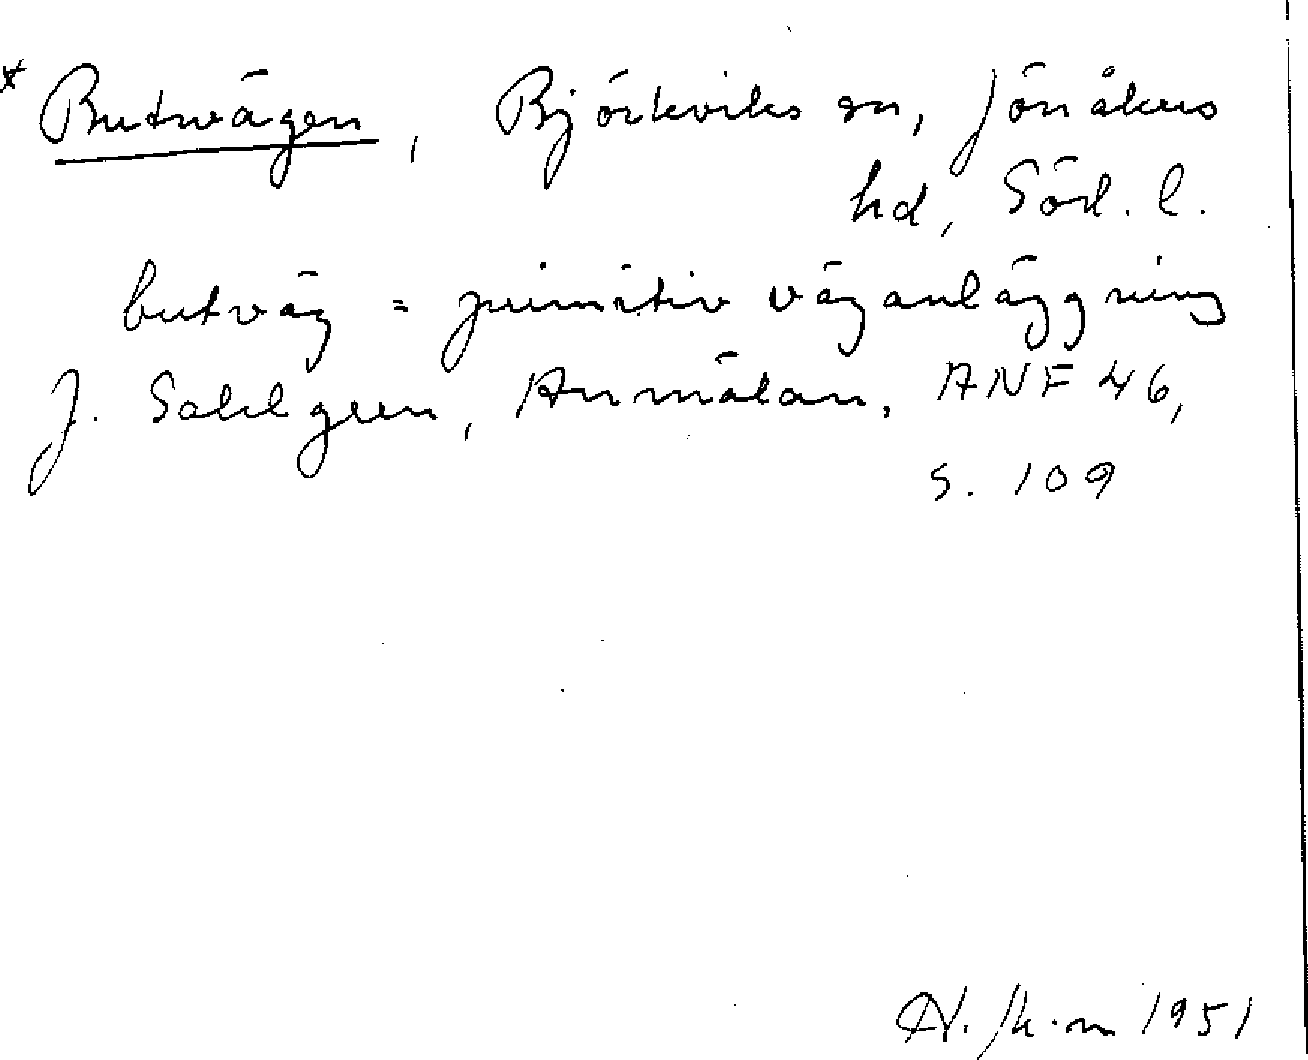 * Butwägen, Björkviks sn, Jönåkers
hd, Söd. l.
butväg = primitiv väganläggning
J. Sahlgren, Anmälan, ANF 46,
s. 109
1951